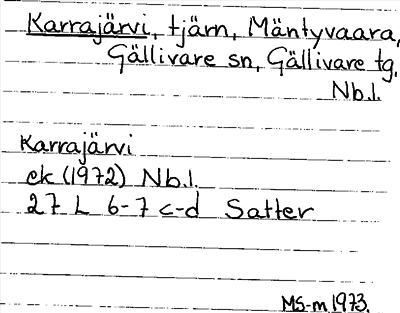 Karrajärvi, tjärn, Mäntyvaara,
Gällivare sn, Gällivare tg.
Nb.l.
Karrajärvi
ek (1972) Nb.l.
27 L 6-7 c-d Satter
MS-m 1973.